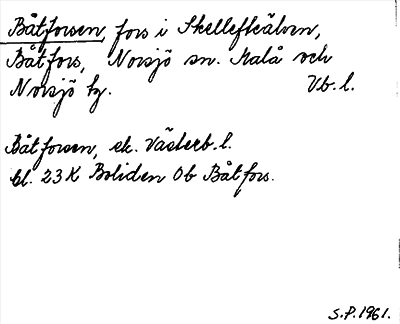 Båtforsen, fors i Skellefteälven,
Båtfors, Norsjö sn. Malå och
Norsjö tg. Vb. l.
Båtforsen, ek. Västerb. l.
bl. 23 K Boliden Ob Båtfors.
S.P. 1961.